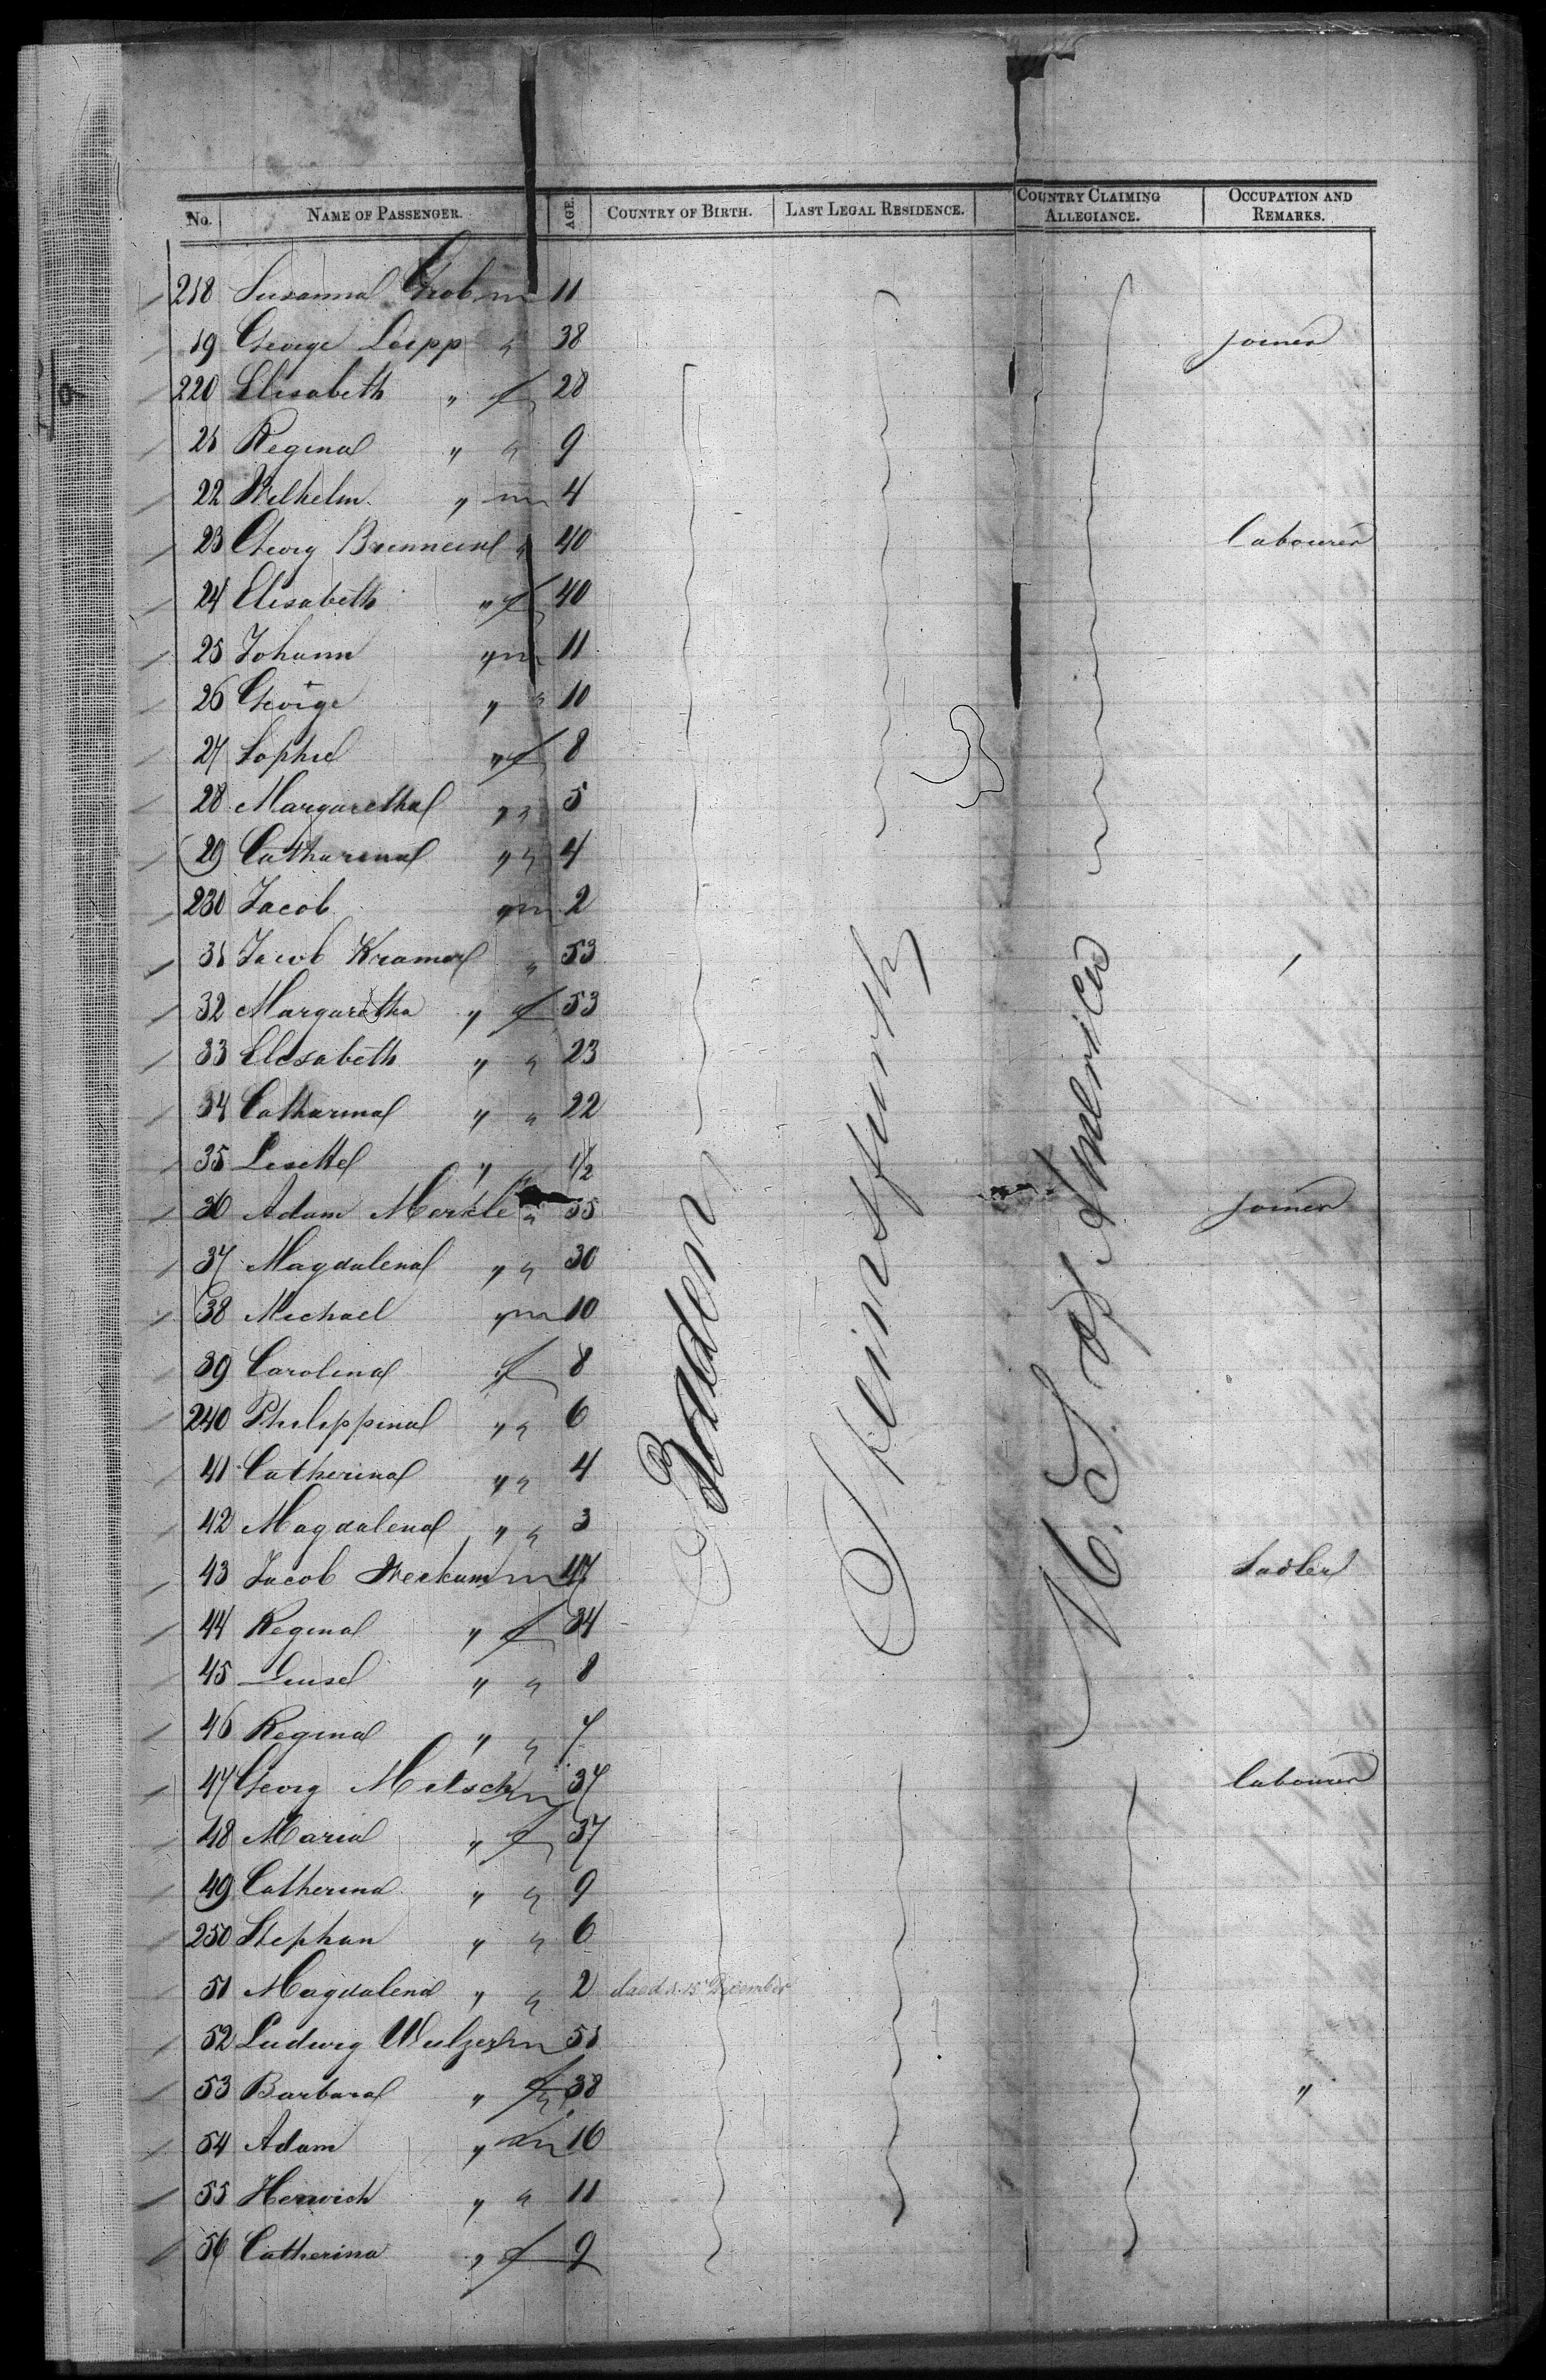 No. NAME OF PASSENGER. AGE. COUNTRY OF BIRTH. LAST LEGAL RESIDENCE. COUNTRY CLAIMING ALLEGIANCE. OCCUPATION AND REMARKS.
218 Susanna Grob m 11
19 George Leipp " 38 joiner
220 Elisabeth " f 28
21 Regina " " 9
22 Wilhelm " m 4
23 Georg Brennein " 40 labourer
24 Elisabeth " f 40
25 Johann " m 11
26 George " " 10
27 Sophie " f 8
28 Margaretha " " 5
29 Catharina " " 4
230 Jacob " m 2
31 Jacob Kramer " 53
32 Margaretha " f 53
33 Elisabeth " " 23
34 Catharina " " 22
35 Lisette " " 1/2
36 Adam Merkle " 35 joiner
37 Magdalena " " 30
38 Michael " m 10
39 Carolina " f 8
240 Philippina " " 6
41 Catherina " " 4
42 Magdalena " " 3
43 Jacob Werkum m 47 Sadler
44 Regina " f 34
45 Luise " " 8
46 Regina " " 7
47 Georg Mitsch m 37 labourer
48 Maria " f 37
49 Catherina " " 9
250 Stephan " " 6
51 Magdalena " " 2 15 December
52 Ludwig Wulzer m 51
53 Barbara " f 38 "
54 Adam " m 16
55 Heinrich " " 11
56 Catherina " f 9
Baden
Steinsfurth
U. S. of America